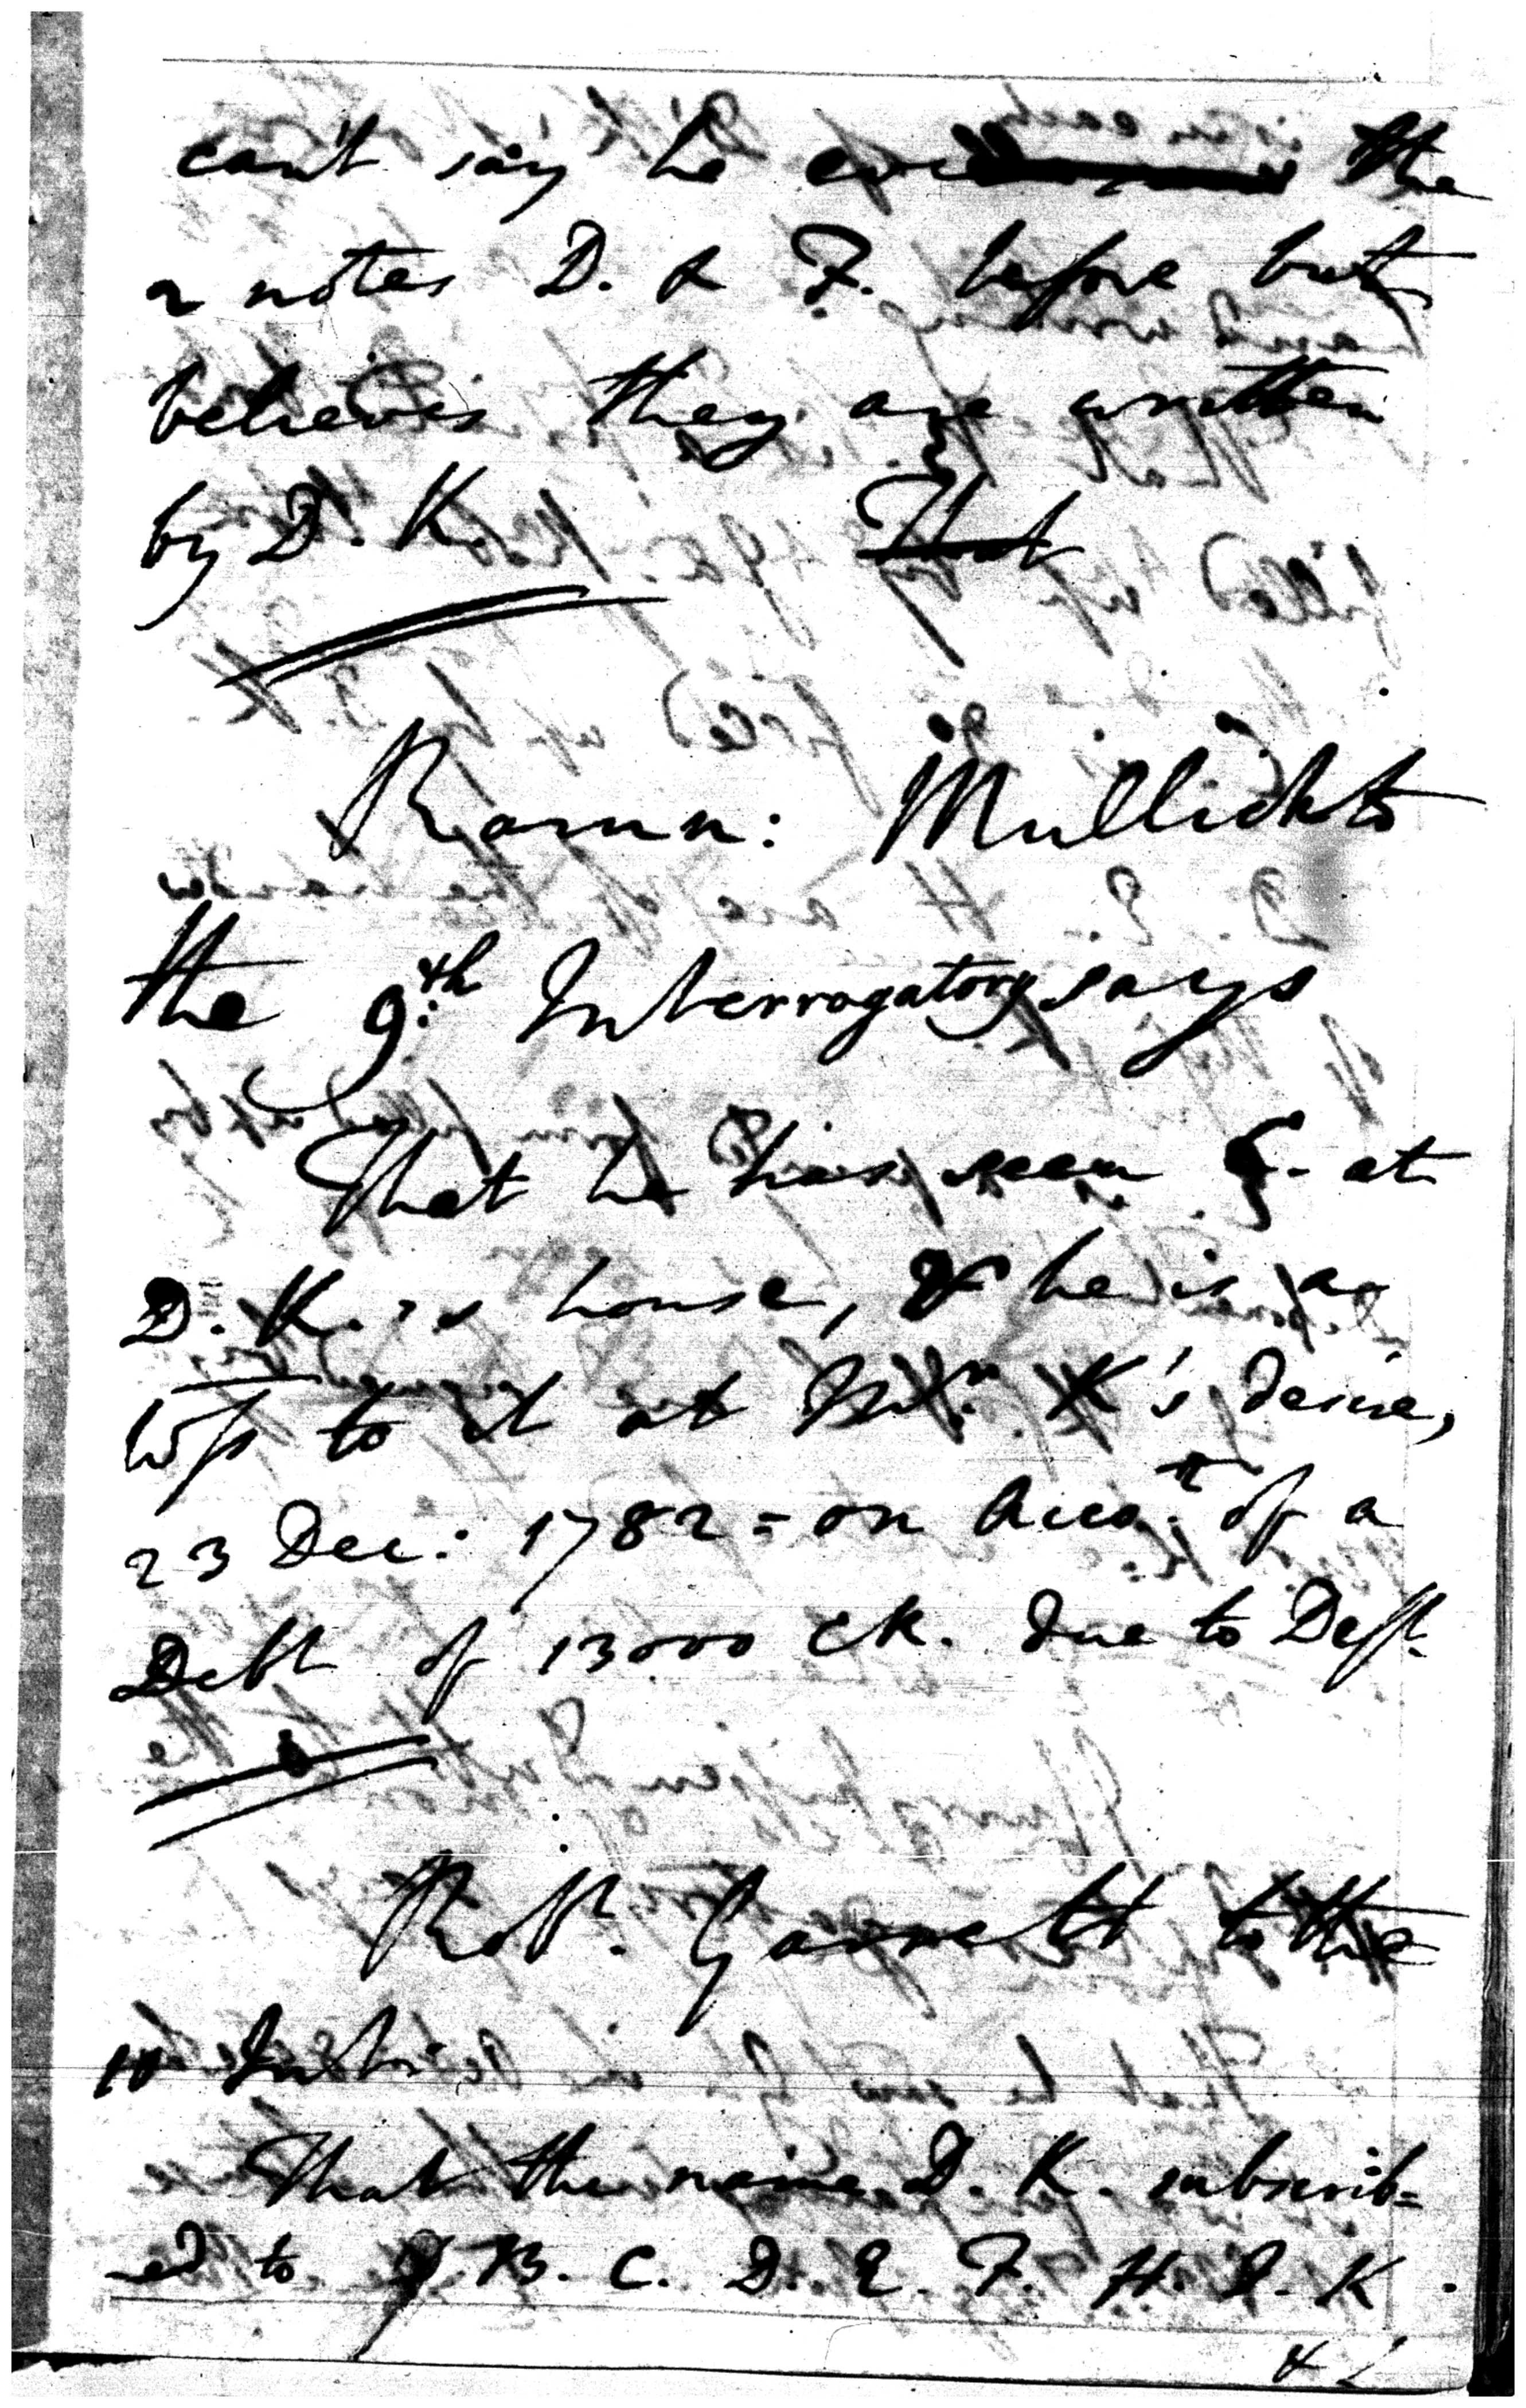 can't say he the
2 notes D. & F. before but
believes they are written
by D. K. That
Ramn: Mullick to
the 9th Interrogatory says
That he has seen G. at
D. K.'s house, & he is a
Wss to it at Mr. K's desire,
23 Dec: 1782 = on Acco.t of a
Debt of 13000 CR. due to Deft.
Robt. Garnett to the
10 Intr:
That the name D. K. subscrib=
ed to B. C. D. E. F. H. I. K.
& L